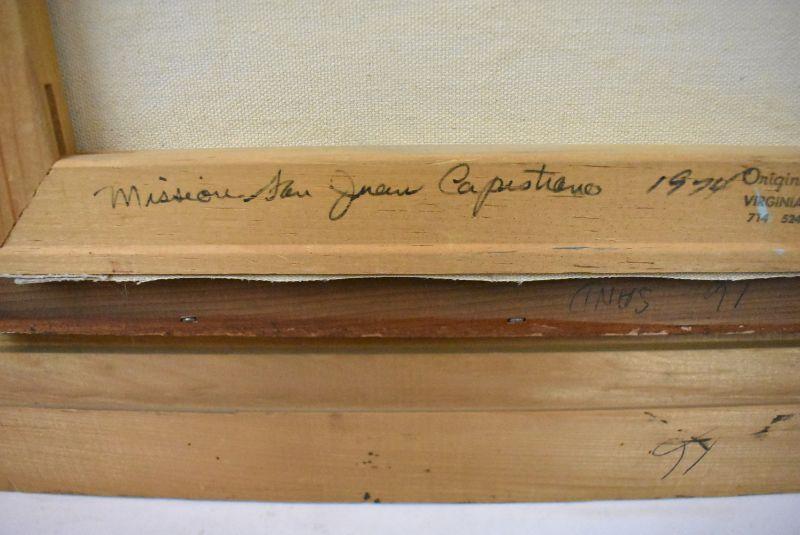 Mission San Juan Capistrano 1974
Origin
VIRGINIA
714 524
SAND